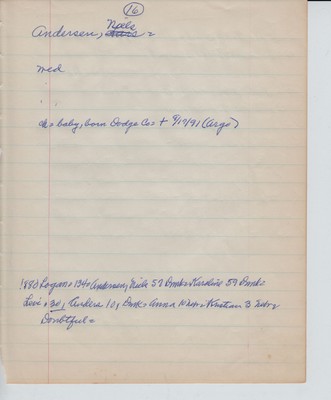 16
Andersen, Niels =
med
ch = baby, born Dodge Co = + 9/19/91 (Argo)
1880 Logan = 134 = Andersen, Niels 57 Dmk = Karoline 57 Dmk =
Levi = 30, Anders 10, Dmk = Anna = Kristian 3
Doubtful =